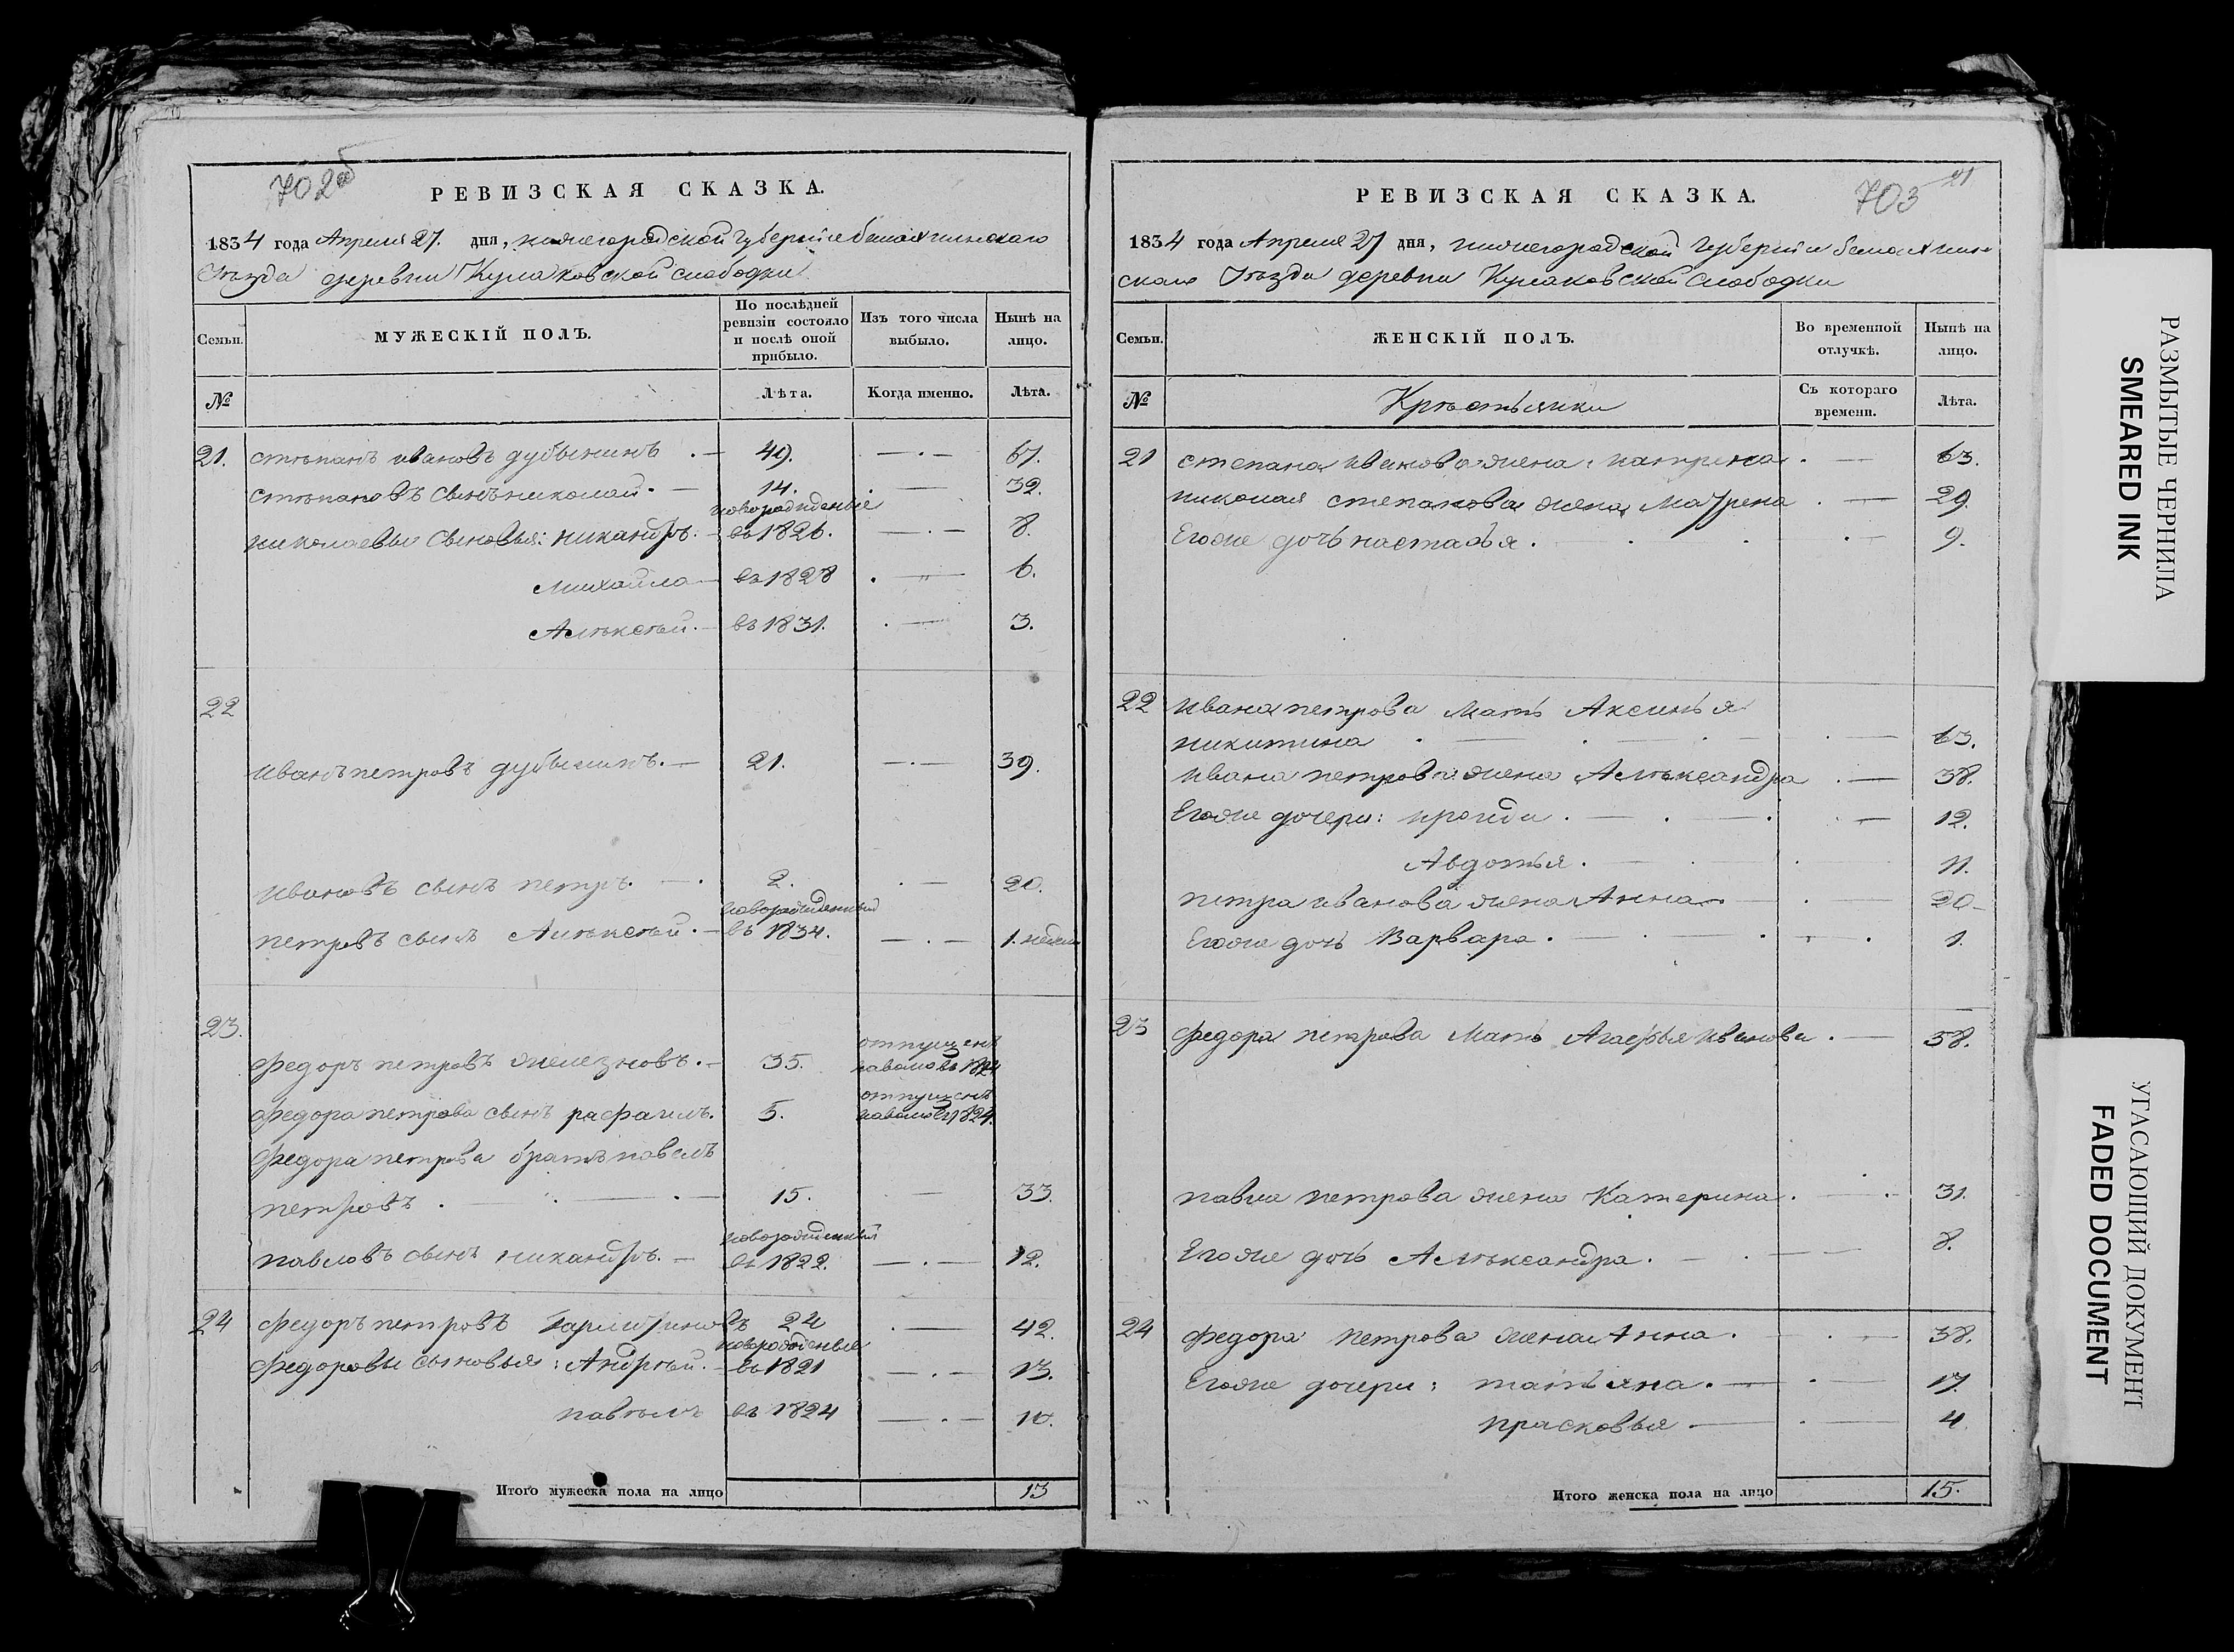 702об
РЕВИЗСКАЯ СКАЗКА.
1834 года Апреля 27. дня, нижегородской Губерніи балахнинскаго
Уѣзда деревни Кулаковской слободки
Семьи.
МУЖЕСКІЙ ПОЛЪ.
По послѣдней ревизіи состояло и послѣ оной прибыло.
Изъ того числа выбыло.
Нынѣ на лицо.
№
Лѣта.
Когда именно.
Лѣта.
21. стѣпанъ ивановъ дубынинъ . — 49. — . — 67.
стѣпановъ сынъ николай . — 14. . — 32.
новорожденые
николаевы сыновья: никандръ. — въ 1826. — . — 8.
михайла — въ 1828 . — 6.
Алѣксѣй. — въ 1831. . — 3.
22
иванъ петровъ дубынинъ. — 21. — . — 39.
ивановъ сынъ петръ. — . 2. . — 20.
новорожденный
петровъ сынъ Алѣксѣй. — въ 1834. — . — 1. недели
23.
отпущенъ
федоръ петровъ железновъ. — 35. наволю въ 1824
отпущенъ
федора петрова сынъ рафаилъ. 5. наволю въ 1824.
федора петрова братъ павелъ
петровъ . — . — . — 15. — 33.
новорожденный
павловъ сынъ никандръ. — въ 1822. — . — 12.
24 федоръ петровъ 24 . — 42.
новорожденые
федоровы сыновья: Андрѣй. — въ 1821 — . — 13.
павѣлъ въ 1824 — . — 10.
Итого мужеска пола на лицо 13
703
21
РЕВИЗСКАЯ СКАЗКА.
1834 года Апреля 27 дня, нижегородской Губерніи балахнин
скаго Уѣзда деревни Кулаковской слободки
Семьи.
ЖЕНСКІЙ ПОЛЪ.
Во временной отлучкѣ.
Нынѣ на лицо.
№
Крѣстьянки
Съ котораго времени.
Лѣта.
21 степана иванова жена катрена . — 63.
николая степанова жена Матрена . — 29.
Егоже дочь настасья . — . — . — 9.
22 ивана петрова мать Аксинья
никитина . — . — . — . — 63.
ивана петрова жена Алѣксандра . — 38.
Егоже дочери: ироида . — . — . — 12.
Авдотья . — . — . 11.
петра иванова жена Анна. — . — 20
Егоже дочь Варвара . — . — . — . 1.
23 федора петрова мать Агафья иванова . — 58.
павла петрова жена Катерина . — . 31.
Егоже дочь Алѣксандра . — . — 8.
24 федора петрова жена Анна . — . — 38.
Егоже дочери: татьяна . — . — 17.
прасковья — . — 4.
Итого женска пола на лицо 15.
РАЗМЫТЫЕ ЧЕРНИЛА
SMEARED INK
УГАСАЮЩИЙ ДОКУМЕНТ
FADED DOCUMENT